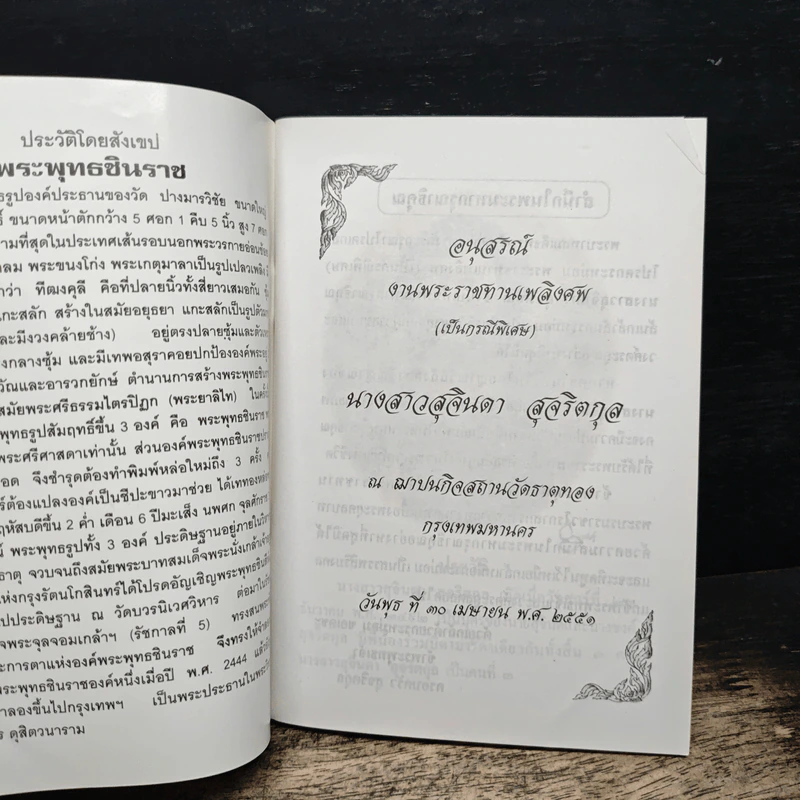 ประวัติโดยสังเขป
พระพุทธชินราช
ธรูปองค์ประธานของวัด ปางมารวิชัย ขนาดใหญ่
ขนาดหน้าตักกว้าง 5 ศอก 1 คืบ 5 นิ้ว สูง 7 ศอก
ามที่สุดในประเทศเส้นรอบนอกพระวรกายอ่อนช้อย
ลม พระขนงโก่ง พระเกตุมาลาเป็นรูปเปลวเพลิง
กว่า ทีฆงคุลี คือที่ปลายนิ้วทั้งสี่ยาวเสมอกัน
แกะสลัก สร้างในสมัยอยุธยา แกะสลักเป็นรูปตัว
และมีงวงคล้ายช้าง) อยู่ตรงปลายซุ้มและตัว
งกลางซุ้ม และมีเทพอสุราคอยปกป้ององค์พระอยู่
วัณและอารวกยักษ์ ตำนานการสร้างพระพุทธชิน
สมัยพระศรีธรรมไตรปิฏก (พระยาลิไท) ในครั้ง
พุทธรูปสัมฤทธิ์ขึ้น 3 องค์ คือ พระพุทธชินราช
พระศรีศาสดาเท่านั้น ส่วนองค์พระพุทธชินราช
อด จึงชำรุดต้องทำพิมพ์หล่อใหม่ถึง 3 ครั้ง
ร์ต้องแปลงองค์เป็นชีปะขาวมาช่วย ได้เททอง
ฤหัสบดีขึ้น 2 ค่ำ เดือน 6 ปีมะเส็ง นพศก จุลศักราช
พระพุทธรูปทั้ง 3 องค์ ประดิษฐานอยู่ภายใน
ธาตุ จวบจนถึงสมัยพระบาทสมเด็จพระนั่งเกล้า
แห่งกรุงรัตนโกสินทร์ได้โปรดอัญเชิญพระพุทธชิน
ปประดิษฐาน ณ วัดบวรนิเวศวิหาร ต่อมา
จพระจุลจอมเกล้าฯ (รัชกาลที่ 5) ทรง
ะการตาแห่งองค์พระพุทธชินราช จึงทรงให้
พระพุทธชินราชองค์หนึ่งเมื่อปี พ.ศ. 2444
าลองขึ้นไปกรุงเทพฯ เป็นพระประธานใน
ร ดุสิตวนาราม
อนุสรณ์
งานพระราชทานเพลิงศพ
(เป็นกรณีพิเศษ)
นางสาวสุจินดา สุจริตกุล
ณ ฌาปนกิจสถานวัดธาตุทอง
กรุงเทพมหานคร
วันพุธ ที่ ๓๐ เมษายน พ.ศ. ๒๕๕๑